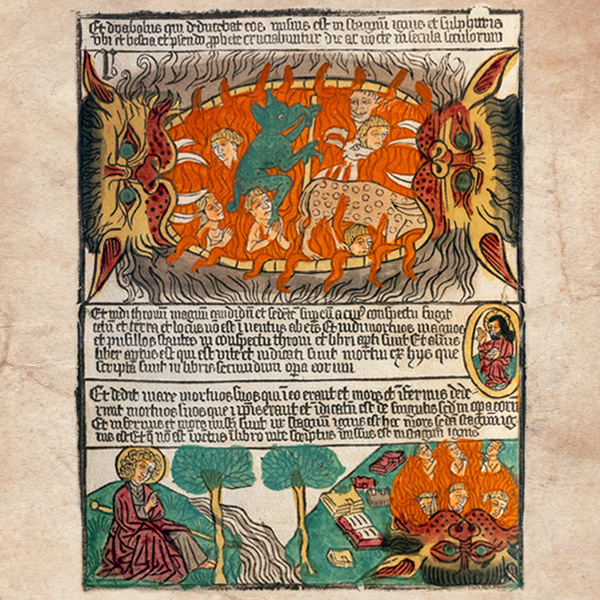 Et dyabolus qui deducebat eos missus est in stagnū ignis et sulphuris
vbi et bestia et pseudo ꝓphete cruciabuntur die ac nocte in secula seculorum
Et uidi thronum magnum candidū et sedētē super eū a cuiꝰ conspectu fugit
et terra et locus nō est inuentus ab eis Et uidi mortuos magnos
et pusillos stantes in conspectu throni et libri apti sunt Et alius
liber aptus est qui est vite et iudicati sunt mortui ex hys que
scripta sunt in libris secundum opera
Et dedit mare mortuos suos qui in eo erant et mors et infernus
mortuos suos que in ipis erant et iudicatū est de singulis sedm opera
Et infernus et mors missi sunt in stagnū ignis est hec mors secda stagnū
est Et qī nō est inuētus ī libro vite scriptus missus est in stagnū ignis